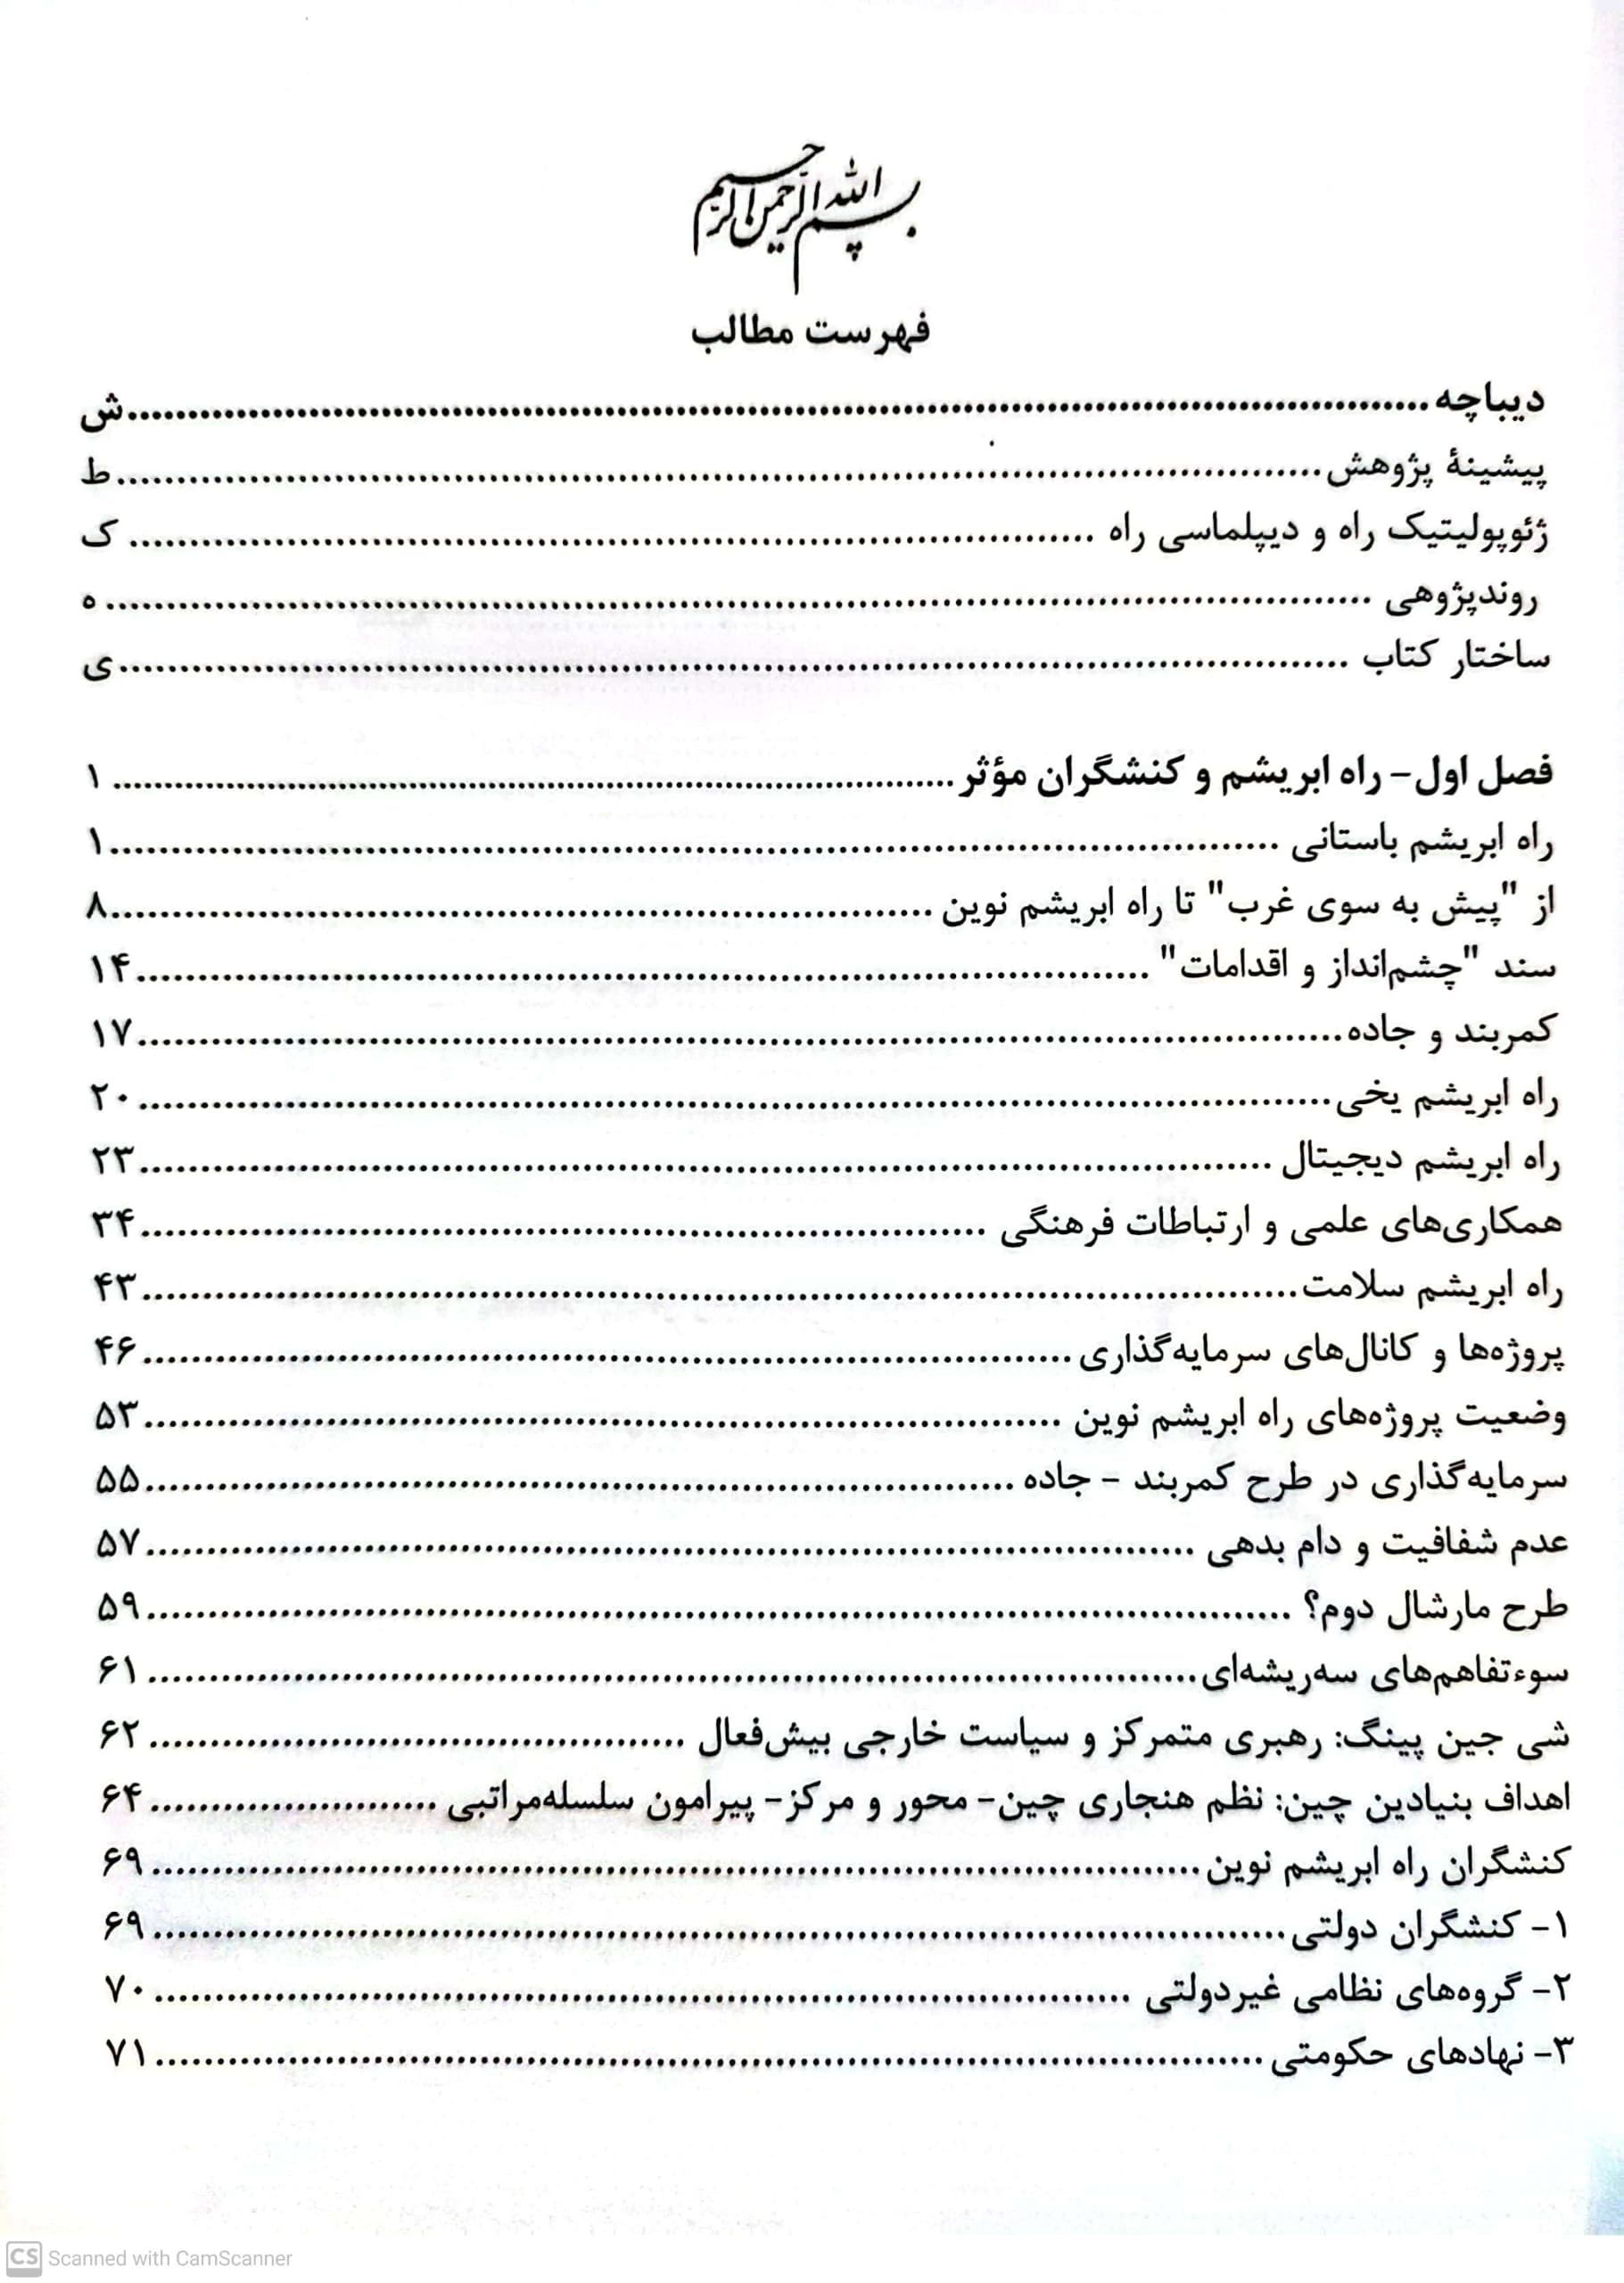 بسم الله الرحمن الرحیم
فهرست مطالب
دیباچه....................ش
پیشینهٔ پژوهش....................ط
ژئوپولیتیک راه و دیپلماسی راه ....................ک
روندپژوهی ....................ه
ساختار کتاب ....................ی
فصل اول- راه ابریشم و کنشگران مؤثر....................۱
راه ابریشم باستانی ....................۱
از "پیش به سوی غرب" تا راه ابریشم نوین ....................۸
سند "چشم‌انداز و اقدامات" ....................۱۴
کمربند و جاده....................۱۷
راه ابریشم یخی....................۲۰
راه ابریشم دیجیتال ....................۲۳
همکاری‌های علمی و ارتباطات فرهنگی ....................۳۴
راه ابریشم سلامت....................۴۳
پروژه‌ها و کانال‌های سرمایه‌گذاری ....................۴۶
وضعیت پروژه‌های راه ابریشم نوین ....................۵۳
سرمایه‌گذاری در طرح کمربند - جاده ....................۵۵
عدم شفافیت و دام بدهی ....................۵۷
طرح مارشال دوم؟ ....................۵۹
سوءتفاهم‌های سه‌ریشه‌ای....................۶۱
شی جین پینگ: رهبری متمرکز و سیاست خارجی بیش‌فعال ....................۶۲
اهداف بنیادین چین: نظم هنجاری چین- محور و مرکز- پیرامون سلسله‌مراتبی ....................۶۴
کنشگران راه ابریشم نوین....................۶۹
۱- کنشگران دولتی....................۶۹
۲- گروه‌های نظامی غیردولتی ....................۷۰
۳- نهادهای حکومتی....................۷۱
CS Scanned with CamScanner